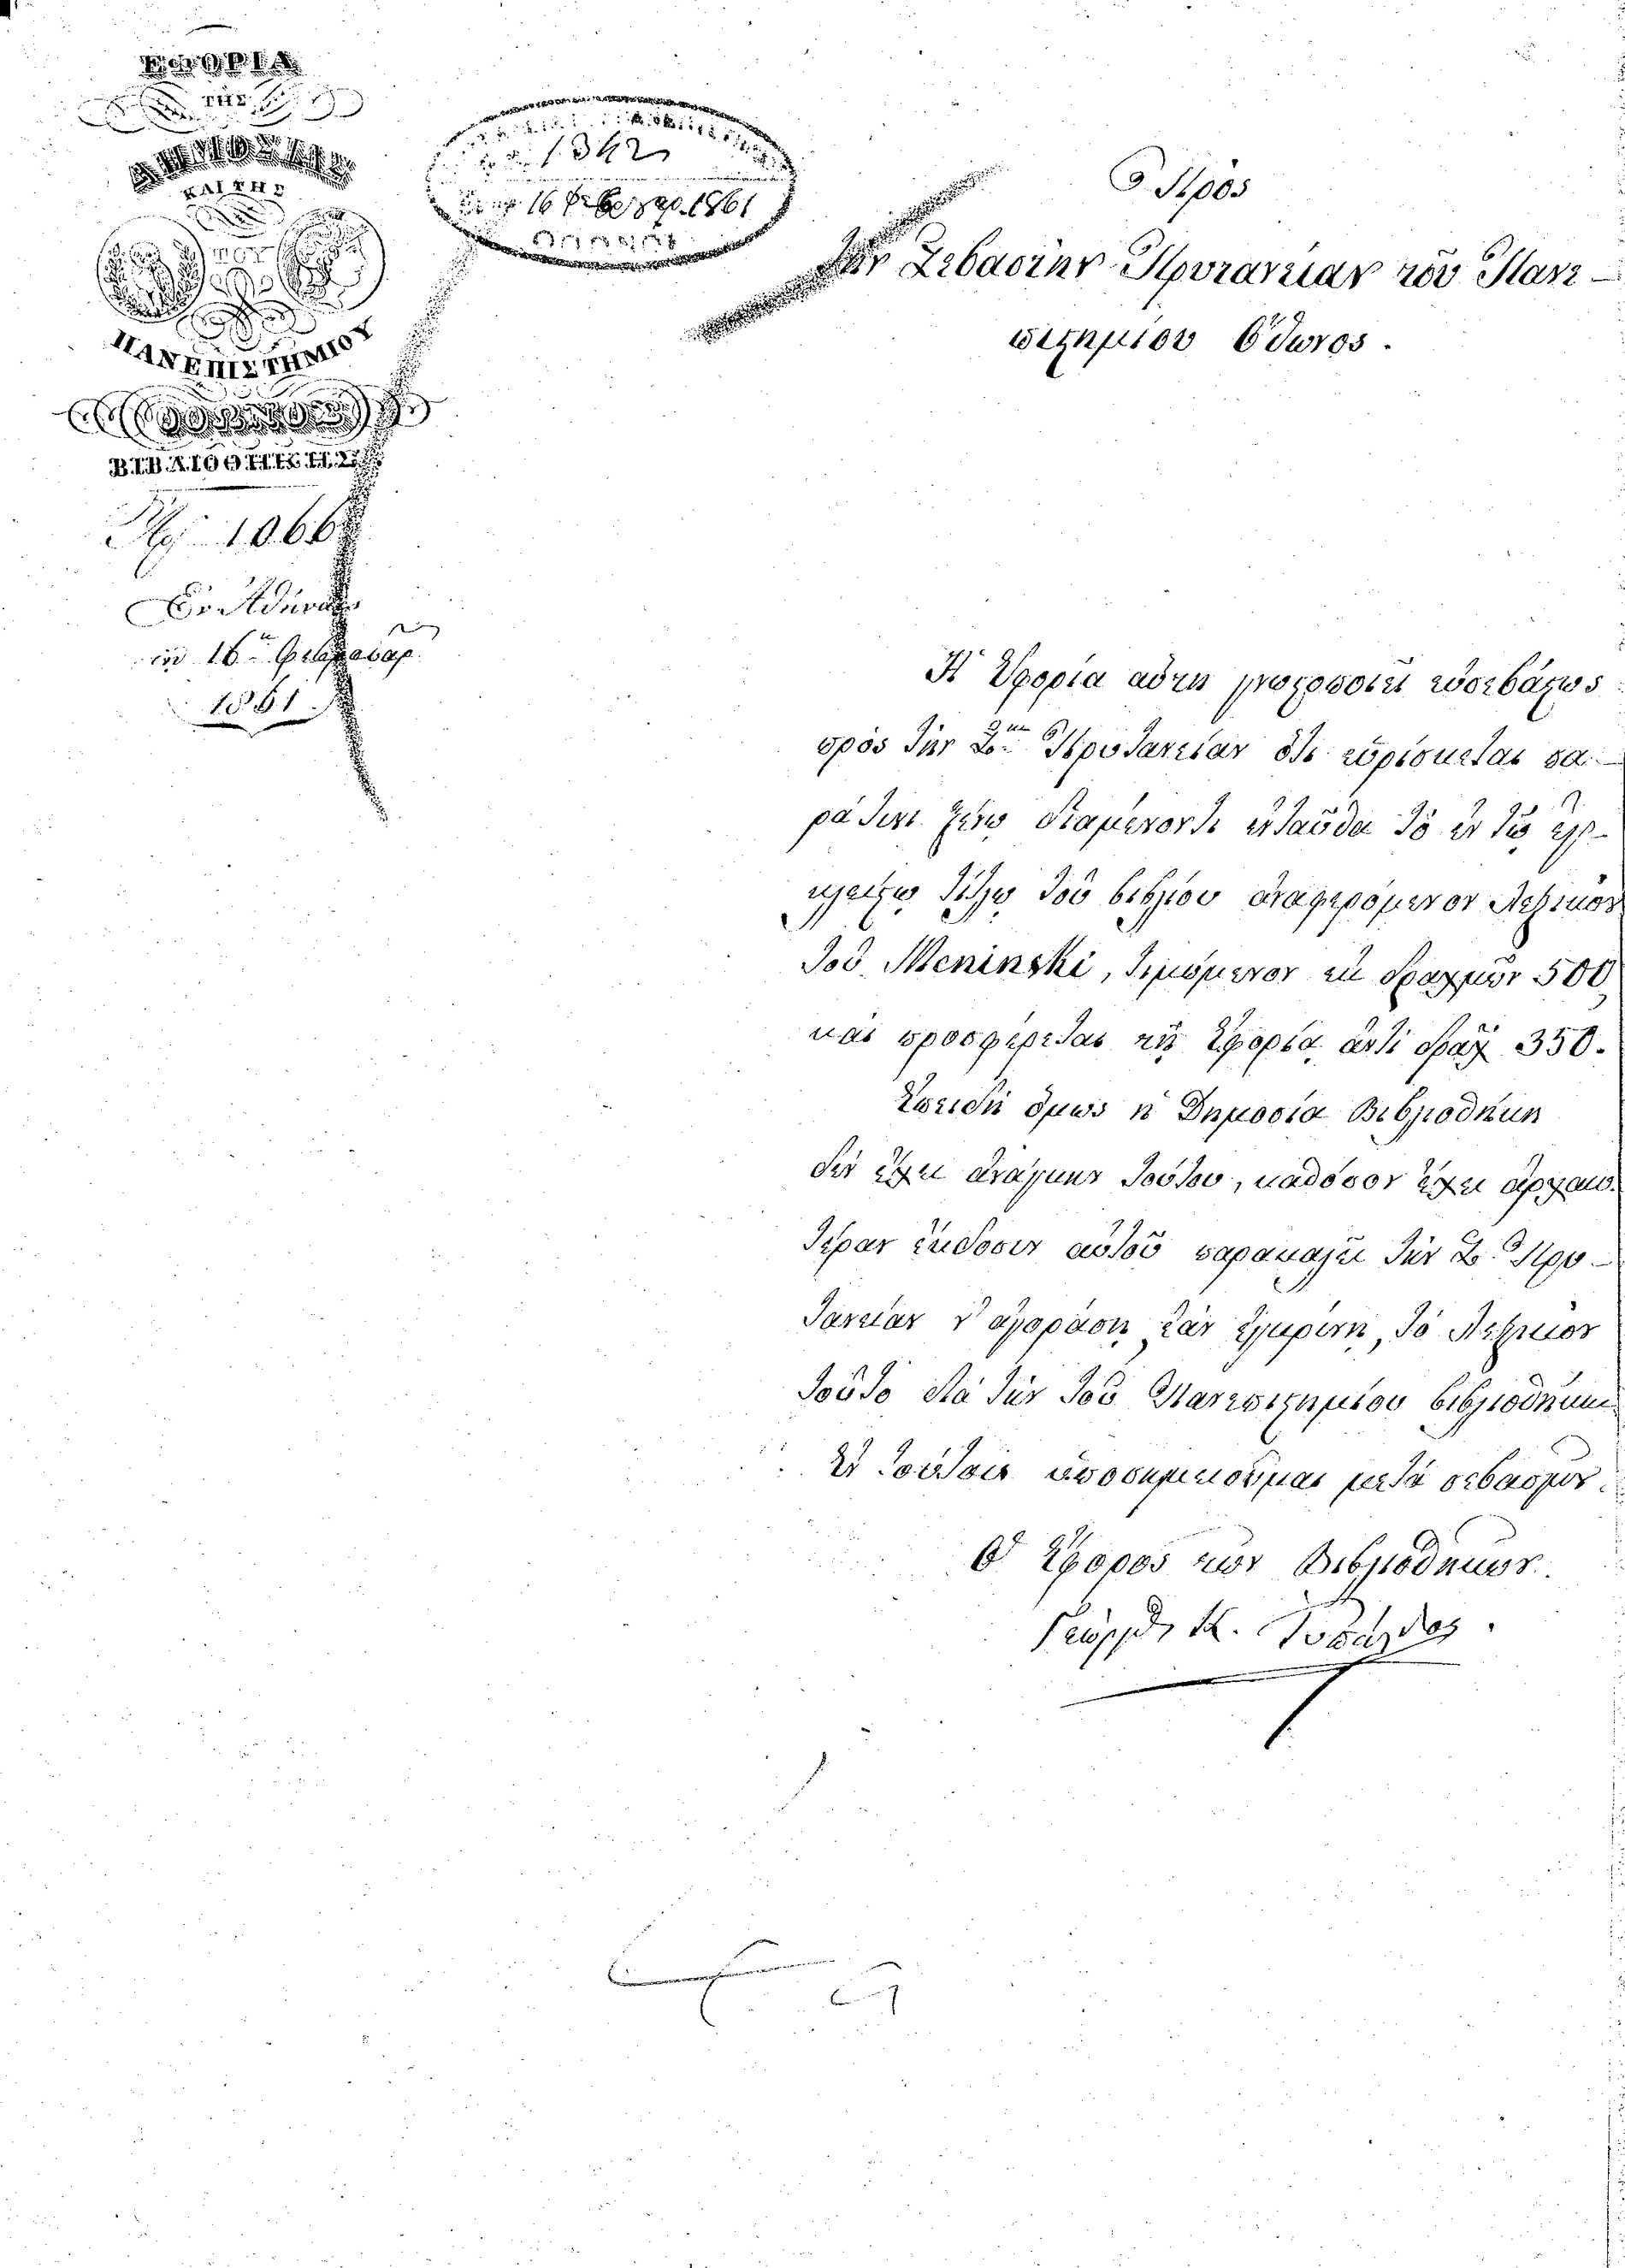 ΕΦΟΡΙΑ
ΤΗΣ
ΔΗΜΟΣΙΑΣ
ΚΑΙ ΤΗΣ
ΤΟΥ
ΠΑΝΕΠΙΣΤΗΜΙΟΥ
ΒΙΒΛΙΟΘΗΚΗΣ
1066
Ἐν Ἀθήναις
τῇ 16ῃ Φεβρουαρ.
1861
1342
16 Φεβρουαρ. 1861
Πρὸς
Τὴν Σεβαστὴν Πρυτανείαν τοῦ Πανε-
πιστημίου Ὄθωνος.
Ἡ Ἐφορία αὕτη γνωστοποιεῖ εὐσεβάστως
πρὸς τὴν Σ. Πρυτανείαν ὅτι εὑρίσκεται πα-
ρά τινι ξένῳ διαμένοντι ἐνταῦθα τὸ ἐν τῷ ἐγ-
κλείστῳ τίτλῳ τοῦ βιβλίου ἀναφερόμενον Λεξικὸν
τοῦ Meninski, τιμώμενον ἐκ δραχμῶν 500
καὶ προσφέρεται τῇ Ἐφορίᾳ ἀντὶ δραχ. 350.
Ἐπειδὴ ὅμως ἡ Δημοσία Βιβλιοθήκη
δὲν ἔχει ἀνάγκην τούτου, καθόσον ἔχει ἀρχαιο-
τέραν ἔκδοσιν αὐτοῦ παρακαλεῖ τὴν Σ. Πρυ-
τανείαν ν' ἀγοράσῃ, ἐὰν ἐγκρίνῃ, τὸ Λεξικὸν
τοῦτο διὰ τὴν τοῦ Πανεπιστημίου βιβλιοθήκην.
Ἐν τούτοις ὑποσημειοῦμαι μετὰ σεβασμοῦ.
Ὁ Ἔφορος τῶν Βιβλιοθηκῶν.
Γεώργ. Κ. Τυπάλδος.